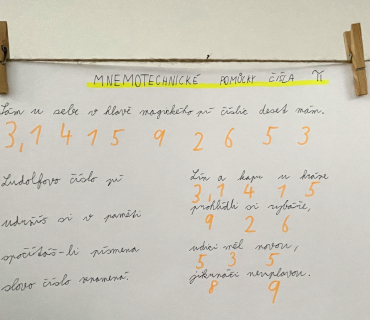 MNEMOTECHNICKÉ POMŮCKY ČÍSLA π
Sám u sebe v hlavě magického pí číslic deset mám.
3,1 4 1 5 9 2 6 5 3
Ludolfovo číslo pí
udržíš si v paměti
spočítáš-li písmena
slovo číslo znamená.
Lín a kapr u hráze
3,1 4 1 5
prohlédli si rybáře,
9 2 6
udici měl novou,
5 3 5
jikrnáči neuplavou.
8 9